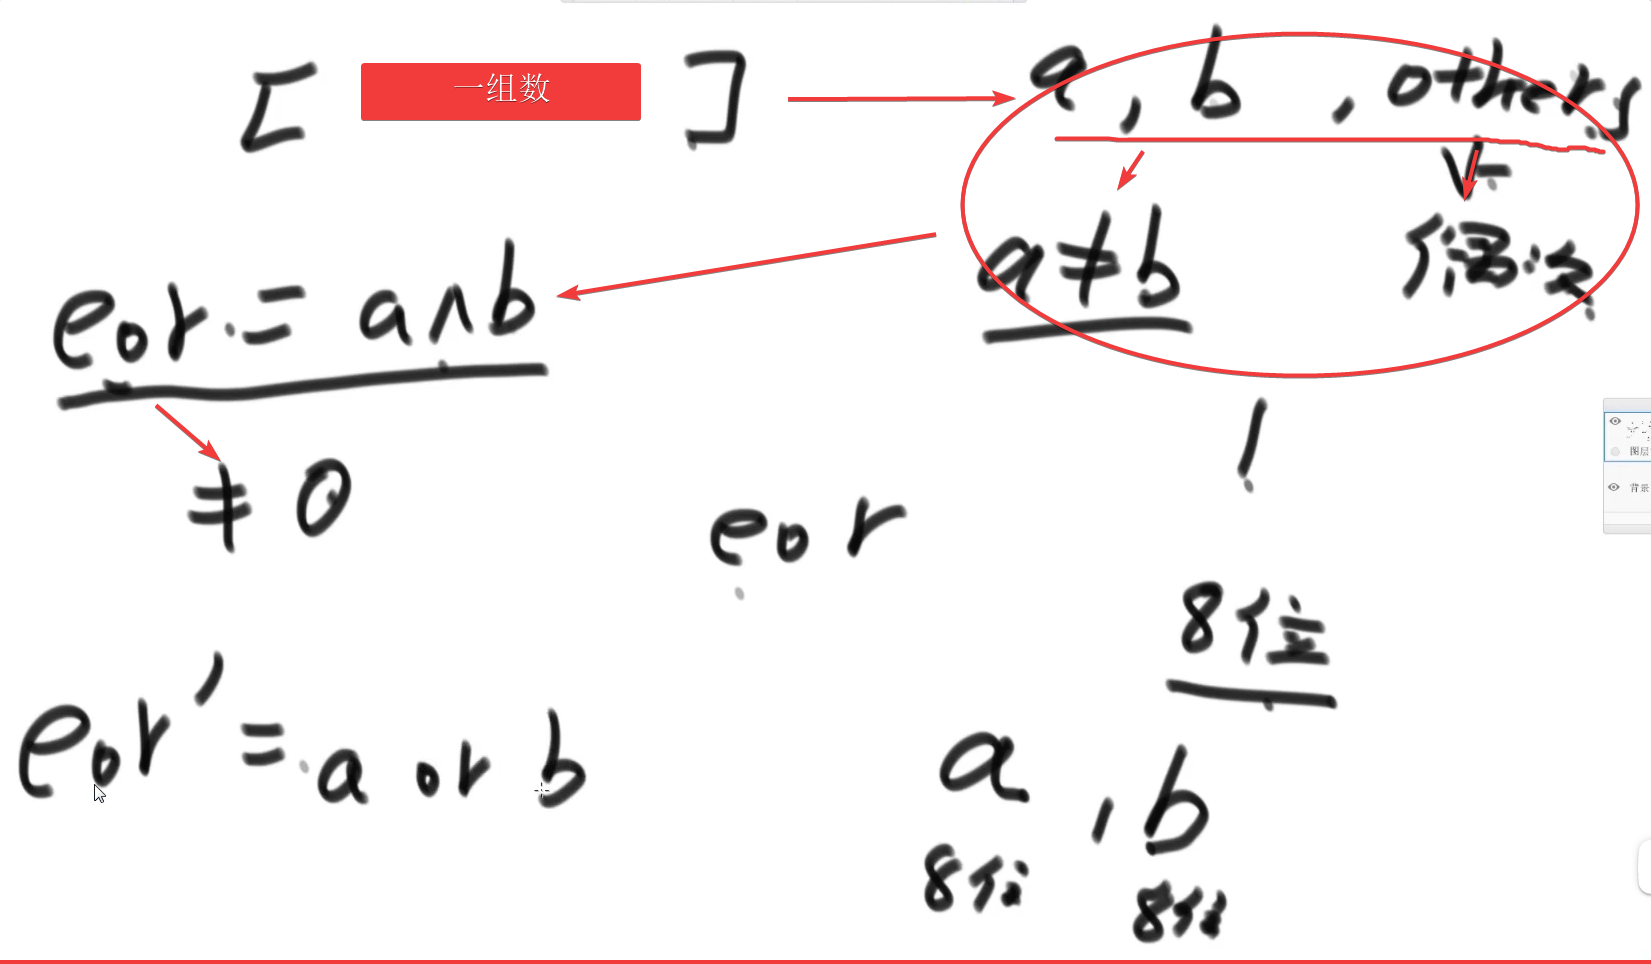 [ 一组数 ] a , b , others
a≠b 偶数
eor = a^b
≠ 0
1
eor
8位
eor' = a or b
a , b
8位 8位
图层
背景